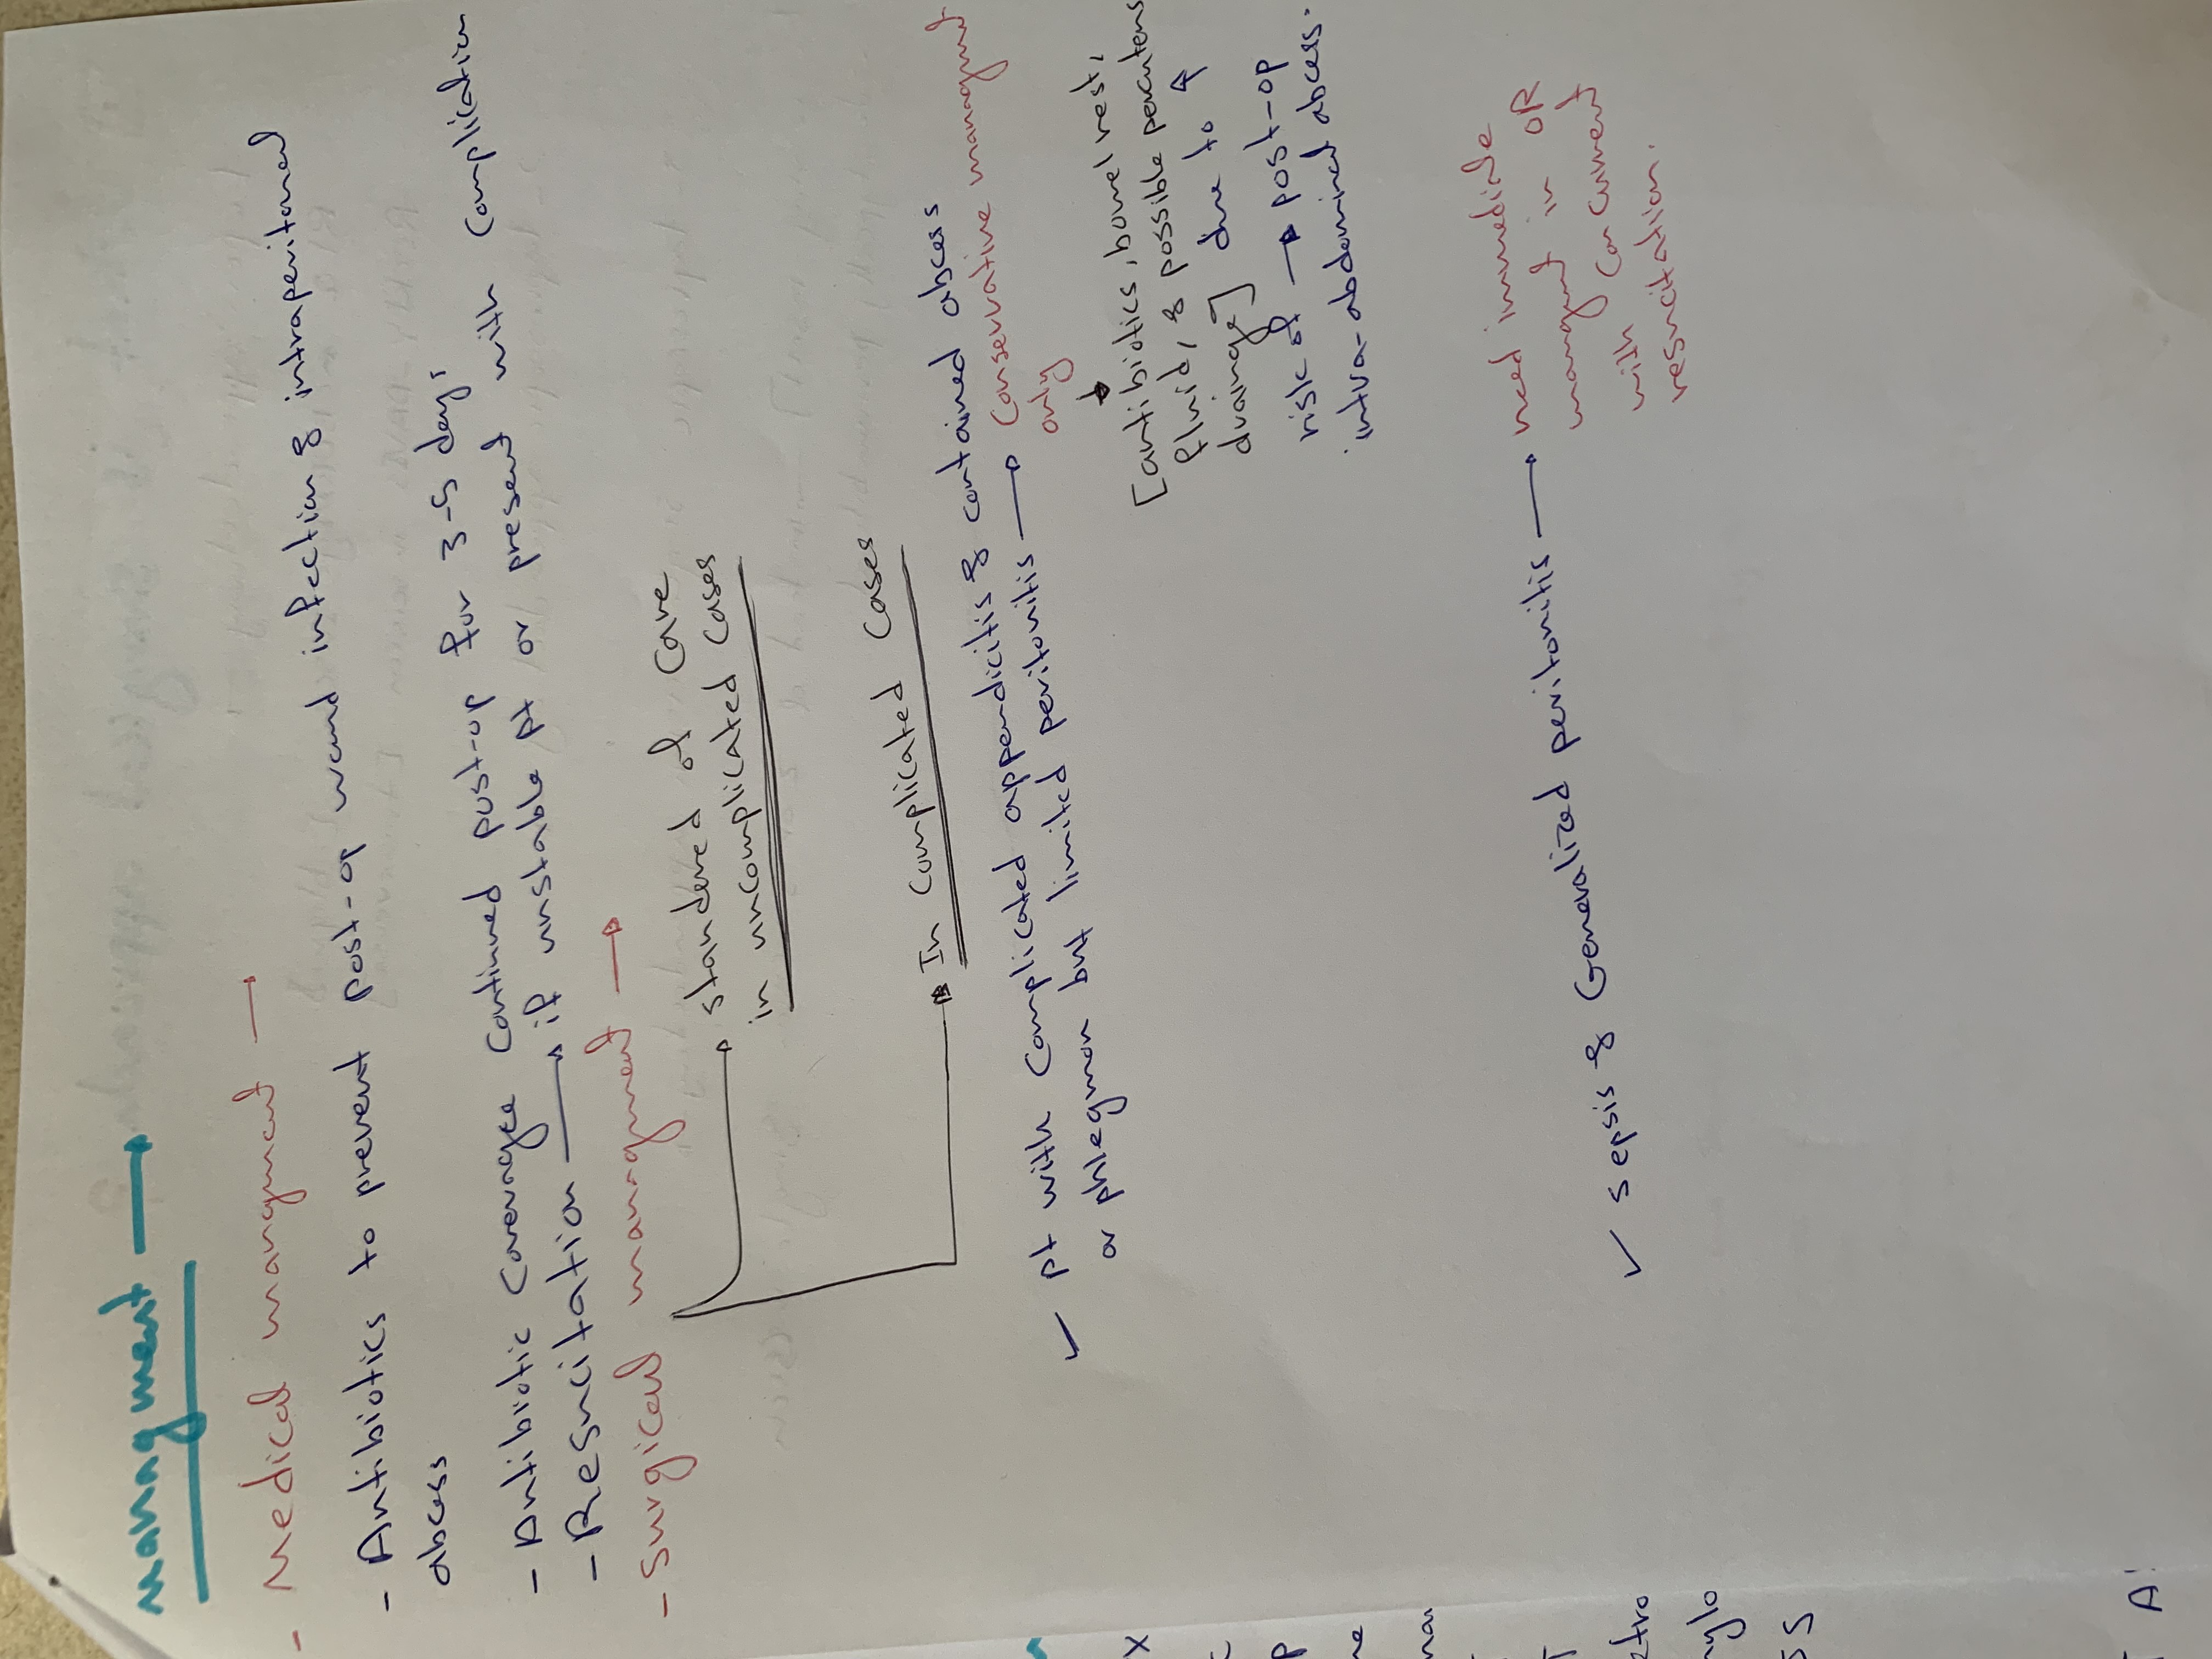 managment →
- Medical mangment →
- Antibiotics to prevent post-op wound infection & intraperitoneal
abcess
- Antibiotic Coverage Continued post-op for 3-5 days
- Resucitation → if unstable pt or present with Complication
- Surgical managment →
→ standered of Care
in uncomplicated Cases
→ In Complicated Cases
✓ pt with Complicated appendicitis & contained abcess
or phlegmon but limited peritonitis → Conservative managmt
only
↓
[antibiotics, bowel rest,
fluid, & possible percutens
drainage] due to ↑
risk of → post-op
intra-abdominal abcess.
✓ sepsis & Generalized peritonitis → need immedide
mangmt in OR
with Concurrent
resucitation.
x
c
p
ne
T
etro
nylo
SS
A